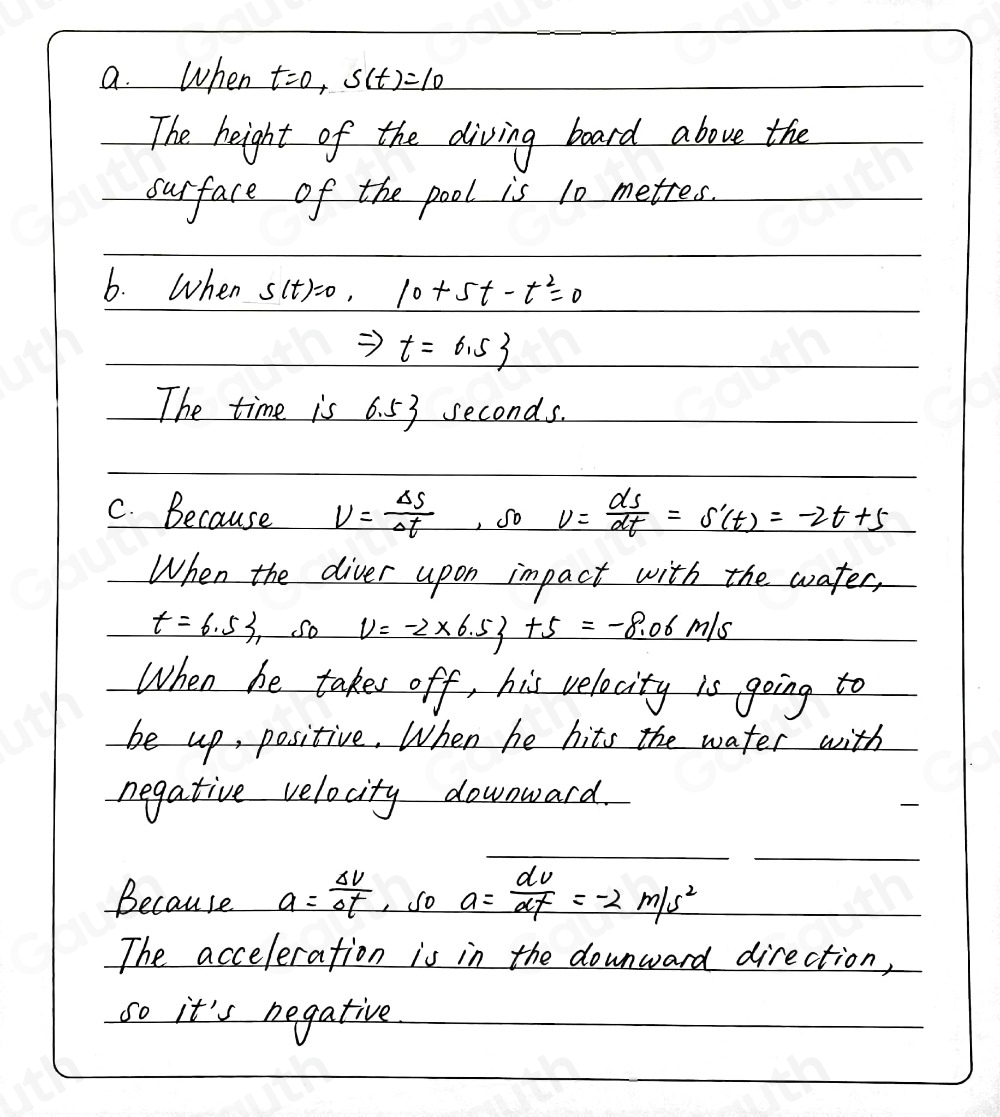 a. When t=0, s(t)=10
The height of the diving board above the
surface of the pool is 10 metres.
b. When s(t)=0, 10+5t-t²=0
⇒ t= 6.53
The time is 6.53 seconds.
c. Because V= Δs/Δt , so v= ds/dt = s'(t) = -2t+5
When the diver upon impact with the water,
t=6.53, so V= -2×6.53 +5 = -8.06 m/s
When he takes off, his velocity is going to
be up, positive. When he hits the water with
negative velocity downward.
Because a= Δv/Δt, so a= dv/dt =-2 m/s²
The acceleration is in the downward direction,
so it's negative.